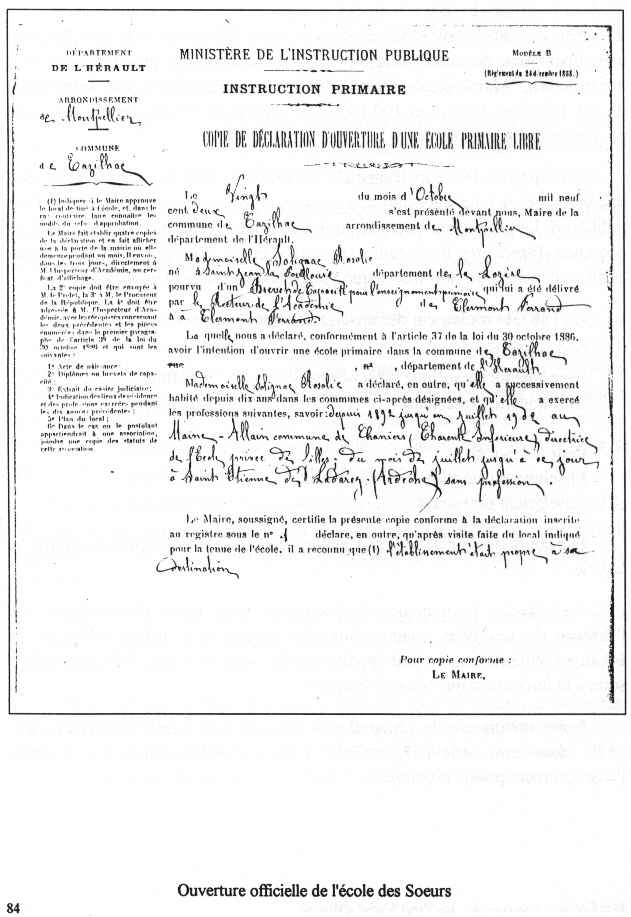 DÉPARTEMENT
DE L'HÉRAULT
ARRONDISSEMENT
de Montpellier
COMMUNE
de Cazilhac
MINISTÈRE DE L'INSTRUCTION PUBLIQUE
INSTRUCTION PRIMAIRE
MODÈLE B
(Règlement du 24 décembre 1888.)
COPIE DE DÉCLARATION D'OUVERTURE D'UNE ÉCOLE PRIMAIRE LIBRE
(1) Indiquer si le Maire approuve
le local destiné à l'école, et, dans le
cas contraire, faire connaître les
motifs du refus d'approbation.
Le Maire fait établir quatre copies
de la déclaration et en fait afficher
une à la porte de la mairie où elle
demeure pendant un mois. Il envoie,
dans les trois jours, directement à
M. l'Inspecteur d'Académie, un cer-
tificat d'affichage.
La 2e copie doit être envoyée à
M. le Préfet, la 3e à M. le Procureur
de la République. La 4e doit être
adressée à M. l'Inspecteur d'Aca-
démie, avec les récépissés concernant
les deux précédentes et les pièces
énumérées dans le premier paragra-
phe de l'article 38 de la loi du
30 octobre 1886 et qui sont les
suivantes :
1° Acte de naissance ;
2° Diplômes ou brevets de capa-
cité ;
3° Extrait du casier judiciaire ;
4° Indication des lieux de résidence
et des professions exercées pendant
les dix années précédentes ;
5° Plan du local ;
6° Dans le cas où le postulant
appartiendrait à une association,
joindre une copie des statuts de
cette association.
Le Vingt du mois d'Octobre mil neuf
cent deux s'est présenté devant nous, Maire de la
commune de Cazilhac arrondissement de Montpellier
département de l'Hérault.
Mademoiselle Solignac Rosalie
né à Saint Jean la Fouillouse département de la Lozère
pourvu d'un Brevet de Capacité pour l'enseignement primaire qui lui a été délivré
par le Recteur de l'Académie de Clermont Ferrand
à Clermont Ferrand
Laquelle nous a déclaré, conformément à l'article 37 de la loi du 30 octobre 1886,
avoir l'intention d'ouvrir une école primaire dans la commune de Cazilhac
rue , n° , département de l'Hérault
Mademoiselle Solignac Rosalie a déclaré, en outre, qu'elle a successivement
habité depuis dix ans dans les communes ci-après désignées, et qu'elle a exercé
les professions suivantes, savoir : depuis 1892 jusqu'en juillet 1902 au
Maine-Allain commune de Chaniers (Charente Inférieure) directrice
de l'Ecole privée de filles. du mois de juillet jusqu'à ce jour
à Saint Etienne de Ladarez (Ardèche) sans profession.
Le Maire, soussigné, certifie la présente copie conforme à la déclaration inscrite
au registre sous le n° 1 déclare, en outre, qu'après visite faite du local indiqué
pour la tenue de l'école, il a reconnu que (1) l'établissement était propre à sa
destination
Pour copie conforme :
LE MAIRE,
Ouverture officielle de l'école des Soeurs
84